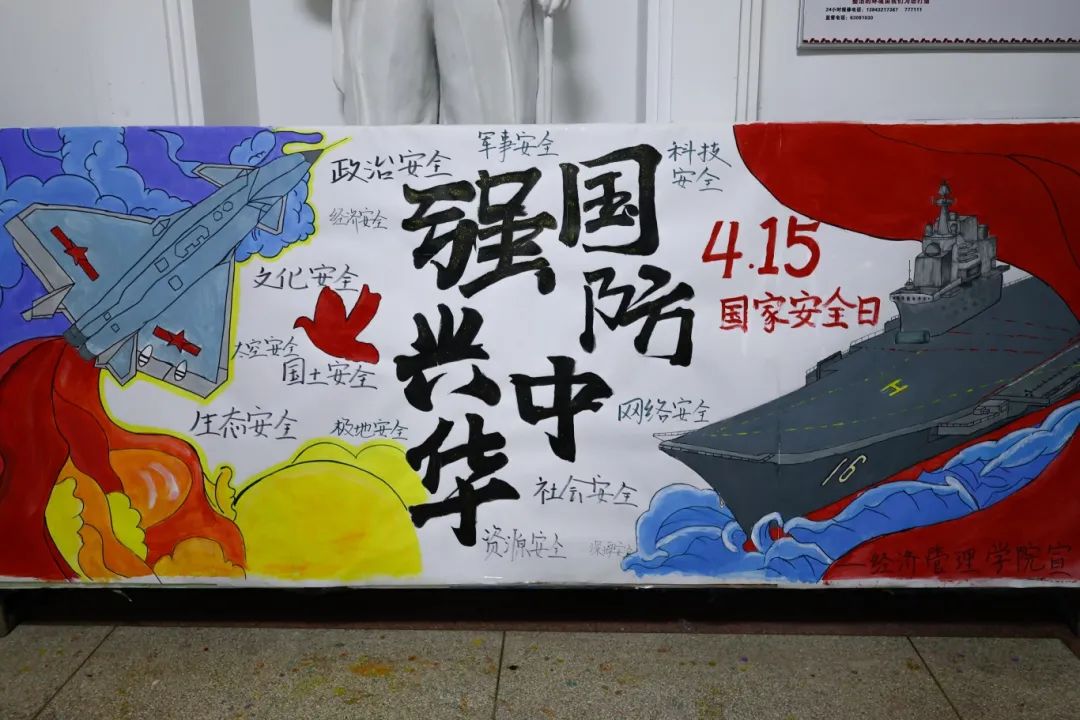 24小时报修电话：13943217367 777111
监督电话：63097030
军事安全
政治安全
科技
安全
经济安全
强国防
兴中华
4.15
国家安全日
文化安全
太空安全
国土安全
生态安全
极地安全
网络安全
社会安全
资源安全
16
H
经济管理学院宣